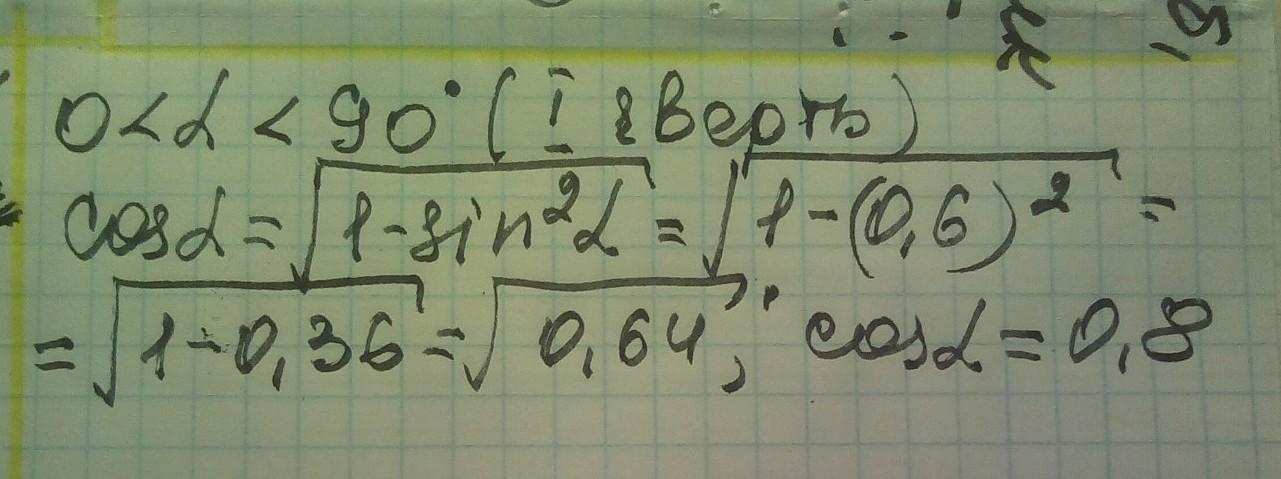 0 < α < 90° (I чверть)
cosα = √(1 - sin²α) = √(1 - (0,6)²) =
= √(1 - 0,36) = √(0,64); cosα = 0,8